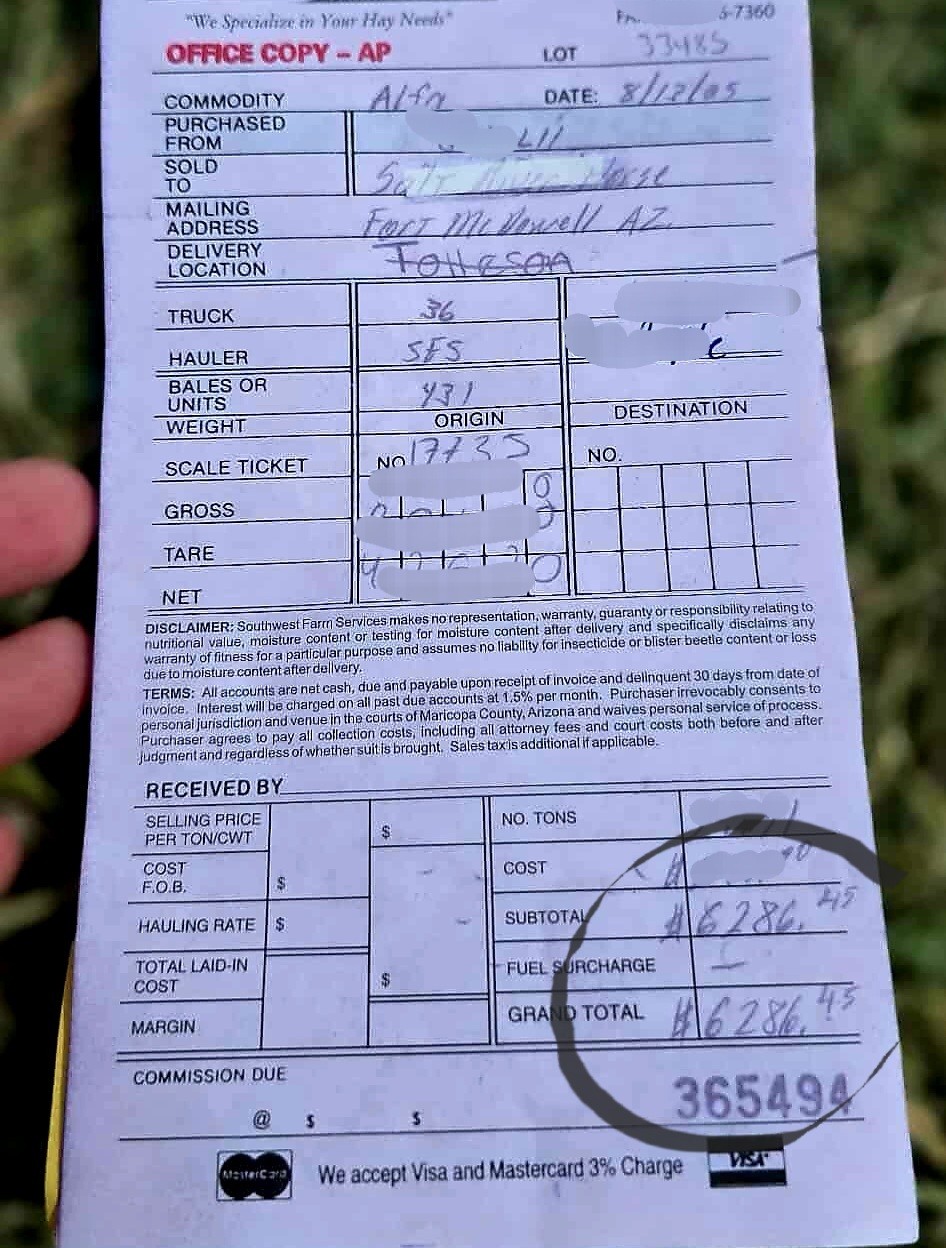 "We Specialize in Your Hay Needs"
5-7360
OFFICE COPY – AP LOT 33485
COMMODITY Alfa DATE: 8/12/05
PURCHASED
FROM
SOLD
TO Salt River Horse
MAILING
ADDRESS Fort McDowell AZ.
DELIVERY
LOCATION
TRUCK 36
HAULER SFS
BALES OR
UNITS 431
WEIGHT ORIGIN DESTINATION
SCALE TICKET NO 17735 NO.
GROSS 0
TARE
NET 0
DISCLAIMER: Southwest Farm Services makes no representation, warranty, guaranty or responsibility relating to
nutritional value, moisture content or testing for moisture content after delivery and specifically disclaims any
warranty of fitness for a particular purpose and assumes no liability for insecticide or blister beetle content or loss
due to moisture content after delivery.
TERMS: All accounts are net cash, due and payable upon receipt of invoice and delinquent 30 days from date of
invoice. Interest will be charged on all past due accounts at 1.5% per month. Purchaser irrevocably consents to
personal jurisdiction and venue in the courts of Maricopa County, Arizona and waives personal service of process.
Purchaser agrees to pay all collection costs, including all attorney fees and court costs both before and after
judgment and regardless of whether suit is brought. Sales tax is additional if applicable.
RECEIVED BY
SELLING PRICE
PER TON/CWT $ NO. TONS
COST
F.O.B. $ COST $
HAULING RATE $ SUBTOTAL $6286.45
TOTAL LAID-IN
COST $ FUEL SURCHARGE —
MARGIN GRAND TOTAL $6286.45
COMMISSION DUE
@ $ $ 365494
MasterCard We accept Visa and Mastercard 3% Charge VISA